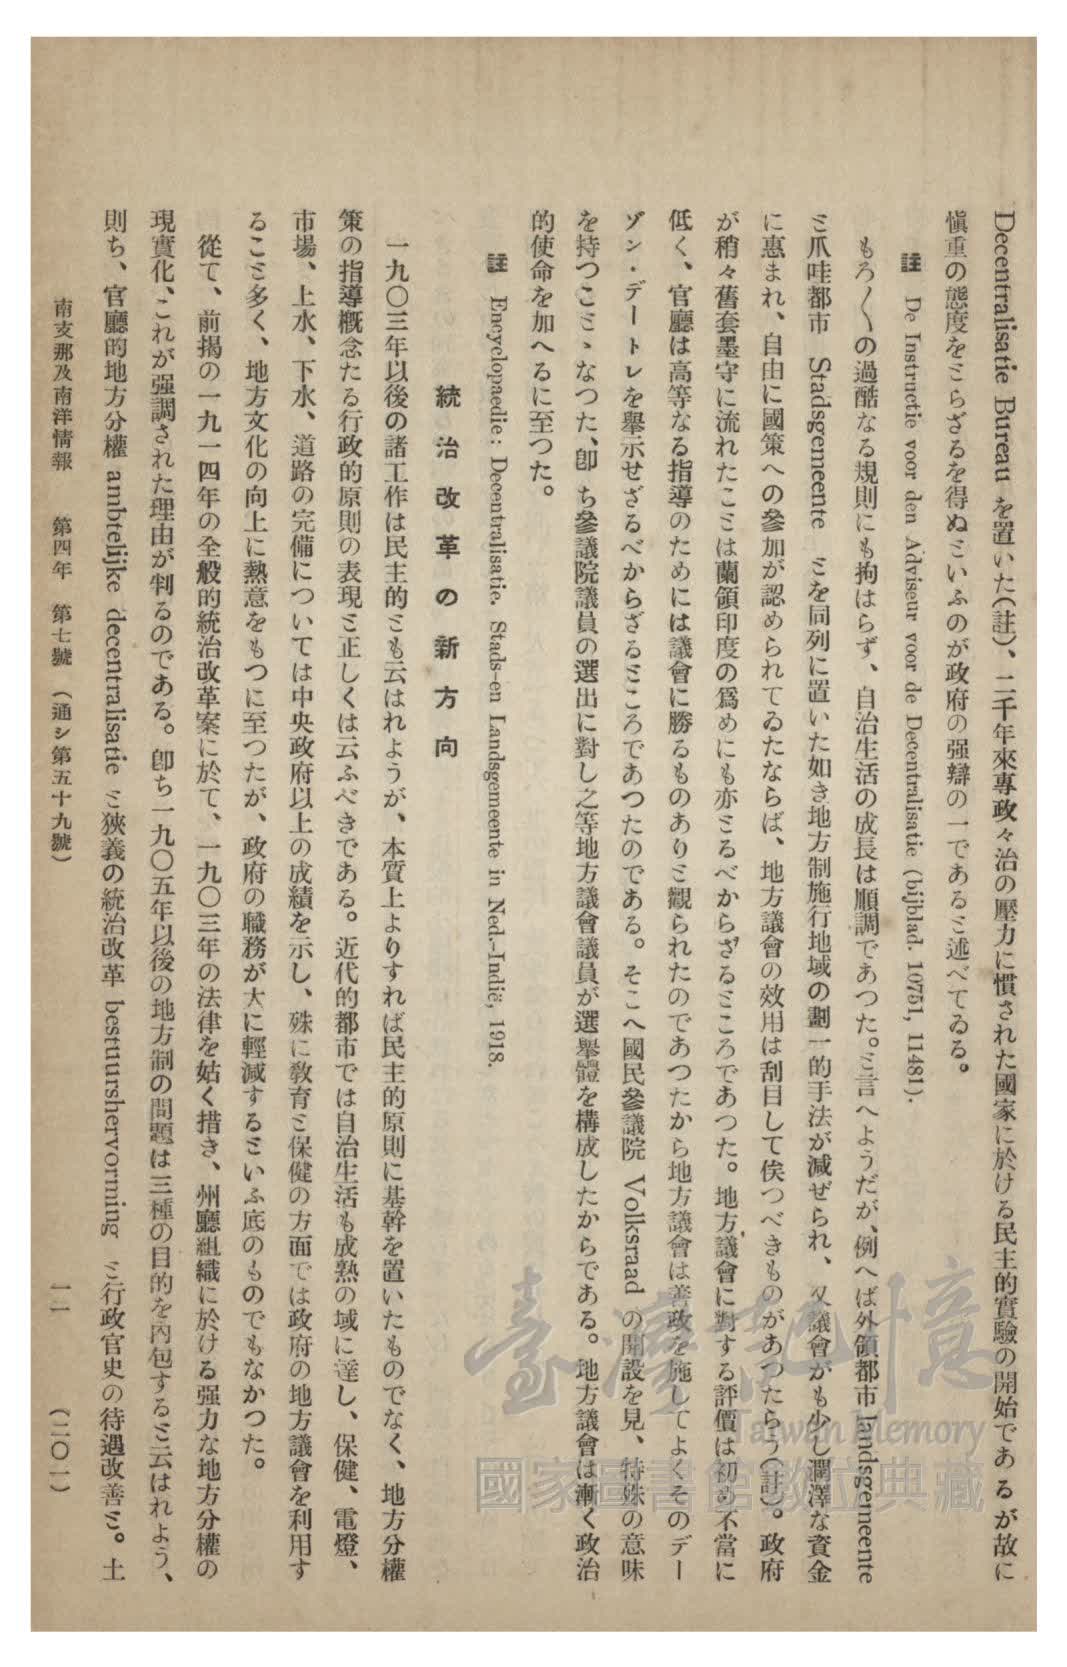 Decentralisatie Bureau を置いた(註)、二千年來專政々治の壓力に慣された國家に於ける民主的實驗の開始であるが故に
愼重の態度をとらざるを得ぬといふのが政府の强辯の一であると述べてゐる。
註 De Instructie voor den Adviseur voor de Decentralisatie (bijblad. 10751, 11481).
もろ〱の過酷なる規則にも拘はらず、自治生活の成長は順調であつた。と言へようだが、例へば外領都市 landsgemeente
と爪哇都市 Stadsgemeente とを同列に置いた如き地方制施行地域の劃一的手法が減ぜられ、又議會がも少し潤澤な資金
に惠まれ、自由に國策への參加が認められてゐたならば、地方議會の效用は刮目して俟つべきものがあつたらう(註)。政府
が稍々舊套墨守に流れたことは蘭領印度の爲めにも亦とるべからざるところであつた。地方議會に對する評價は初め不當に
低く、官廳は高等なる指導のためには議會に勝るものありと觀られたのであつたから地方議會は善政を施してよくそのデー
ゾン・デートレを擧示せざるべからざるところであつたのである。そこへ國民參議院 Volksraad の開設を見、特殊の意味
を持つことゝなつた、卽ち參議院議員の選出に對し之等地方議會議員が選擧體を構成したからである。地方議會は漸く政治
的使命を加へるに至つた。
註 Encyclopaedie: Decentralisatie. Stads-en Landsgemeente in Ned.-Indië, 1918.
統治改革の新方向
一九〇三年以後の諸工作は民主的とも云はれようが、本質上よりすれば民主的原則に基幹を置いたものでなく、地方分權
策の指導槪念たる行政的原則の表現と正しくは云ふべきである。近代的都市では自治生活も成熟の域に達し、保健、電燈、
市場、上水、下水、道路の完備については中央政府以上の成績を示し、殊に敎育と保健の方面では政府の地方議會を利用す
ること多く、地方文化の向上に熱意をもつに至つたが、政府の職務が大に輕減するといふ底のものでもなかつた。
從て、前揭の一九一四年の全般的統治改革案に於て、一九〇三年の法律を姑く措き、州廳組織に於ける强力な地方分權の
現實化、これが强調された理由が判るのである。卽ち一九〇五年以後の地方制の問題は三種の目的を內包すると云はれよう、
則ち、官廳的地方分權 ambtelijke decentralisatie と狹義の統治改革 bestuurshervorming と行政官史の待遇改善と。土
南支那及南洋情報 第四年 第七號 (通シ第五十九號) 一一 (二〇一)
臺灣記憶
Taiwan Memory
國家圖書館數位典藏